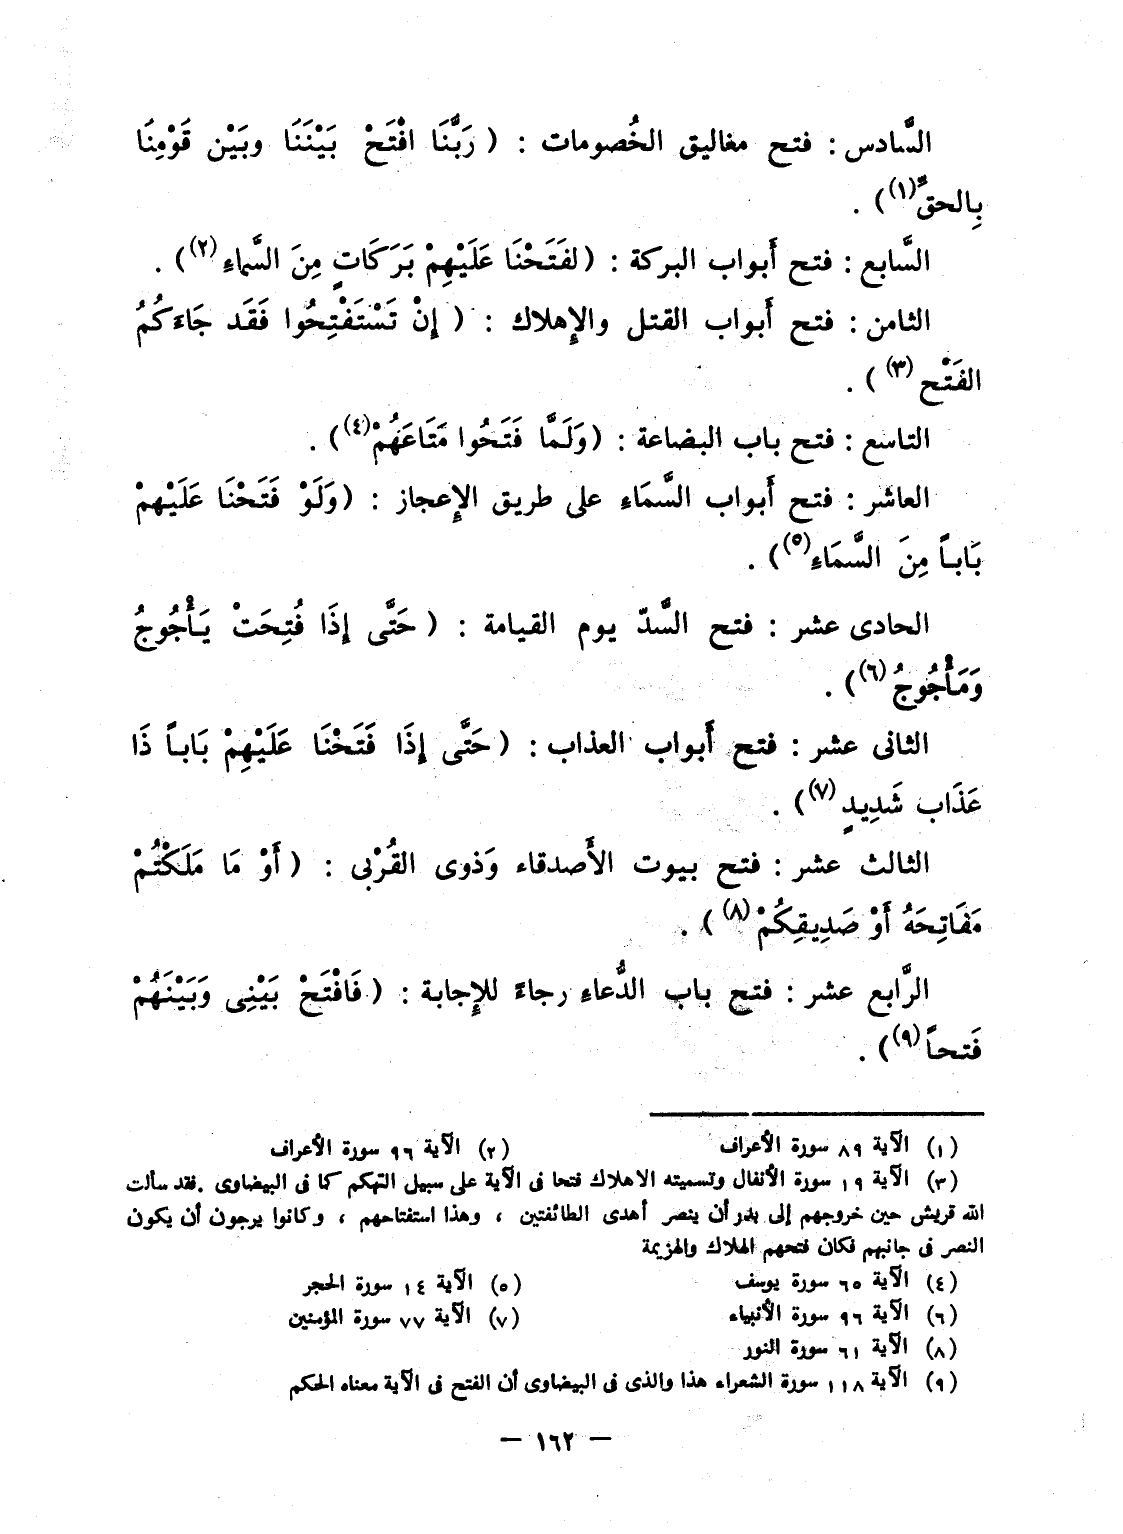 السَّادس : فتح مغاليق الخُصومات : ( رَبَّنَا افْتَحْ بَيْنَنَا وبَيْن قَوْمِنَا
بِالحقِّ(١) ) .
السَّابع : فتح أَبواب البركة : ( لفَتَحْنَا عَلَيْهِمْ بَرَكَاتٍ مِنَ السَّماءِ(٢) ) .
الثامن : فتح أَبواب القتل والإِهلاك : ( إِنْ تَسْتَفْتِحُوا فَقَد جَاءَكُمُ
الفَتْح(٣) ) .
التاسع : فتح باب البضاعة : ( وَلَمَّا فَتَحُوا مَتَاعَهُمْ(٤) ) .
العاشر : فتح أَبواب السَّمَاءِ على طريق الإِعجاز : ( وَلَوْ فَتَحْنَا عَلَيْهِمْ
بَاباً مِنَ السَّمَاءِ(٥) ) .
الحادى عشر : فتح السَّدّ يوم القيامة : ( حَتَّى إِذَا فُتِحَتْ يَأْجُوجُ
وَمَأْجُوجُ(٦) ) .
الثانى عشر : فتح أَبواب العذاب : ( حَتَّى إِذَا فَتَحْنَا عَلَيْهِمْ بَاباً ذَا
عَذَاب شَدِيدٍ(٧) ) .
الثالث عشر : فتح بيوت الأَصدقاء وَذوى القُرْبى : ( أَوْ مَا مَلَكْتُمْ
مَفَاتِحَهُ أَوْ صَدِيقِكُمْ(٨) ) .
الرَّابع عشر : فتح باب الدُّعاءِ رجاءً للإِجابة : ( فَافْتَحْ بَيْنِى وَبَيْنَهُمْ
فَتحاً(٩) ) .
(١) الآية ٨٩ سورة الأعراف (٢) الآية ٩٦ سورة الأعراف
(٣) الآية ١٩ سورة الأنفال وتسميته الاهلاك فتحا فى الآية على سبيل التهكم كما فى البيضاوى . فقد سألت
الله قريش حين خروجهم إلى بدر أن ينصر أهدى الطائفتين ، وهذا استفتاحهم ، وكانوا يرجون أن يكون
النصر فى جانبهم فكان فتحهم الهلاك والهزيمة
(٤) الآية ٦٥ سورة يوسف (٥) الآية ١٤ سورة الحجر
(٦) الآية ٩٦ سورة الأنبياء (٧) الآية ٧٧ سورة المؤمنين
(٨) الآية ٦١ سورة النور
(٩) الآية ١١٨ سورة الشعراء هذا والذى فى البيضاوى أن الفتح فى الآية معناه الحكم
— ١٦٢ —